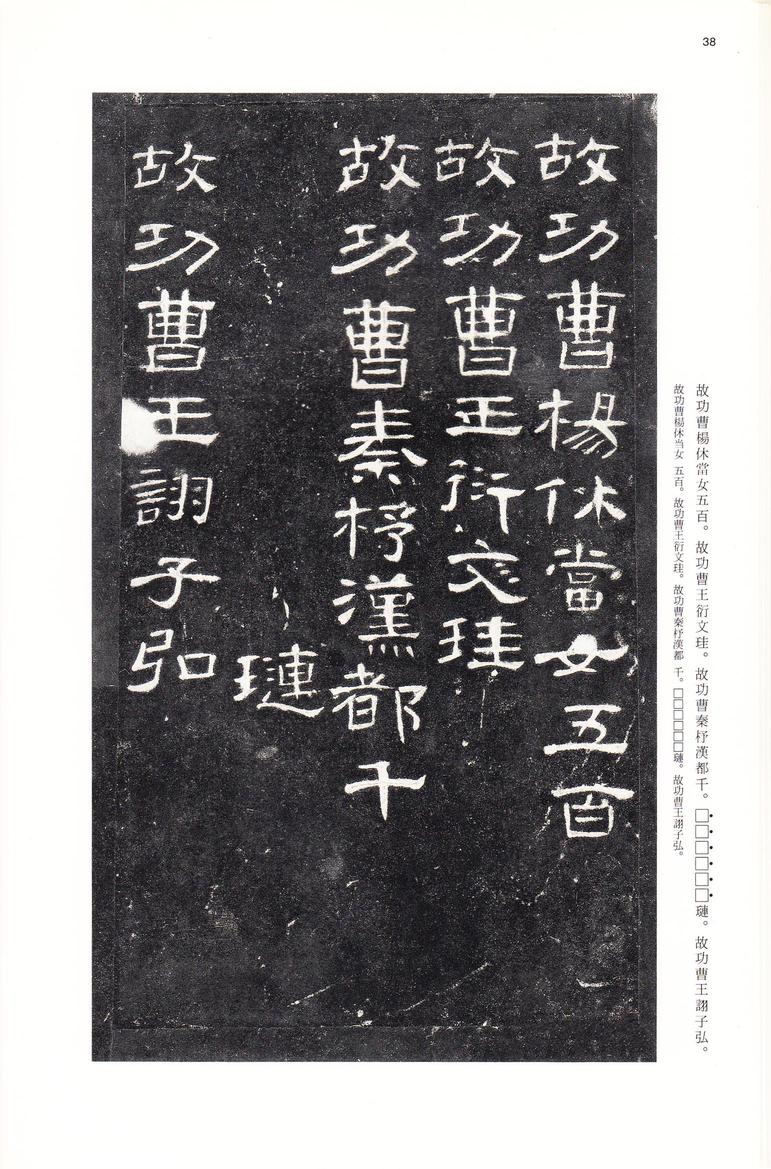 38
故功曹楊休當女五百。故功曹王衍文珪。故功曹秦杼漢都千。□□□□□□璉。故功曹王詡子弘。
故功曹楊休当女 五百。故功曹王衍文珪。故功曹秦杼漢都 千。□□□□□□璉。故功曹王詡子弘。
故功曹楊休當女五百
故功曹王衍文珪
故功曹秦杼漢都千
璉
故功曹王詡子弘